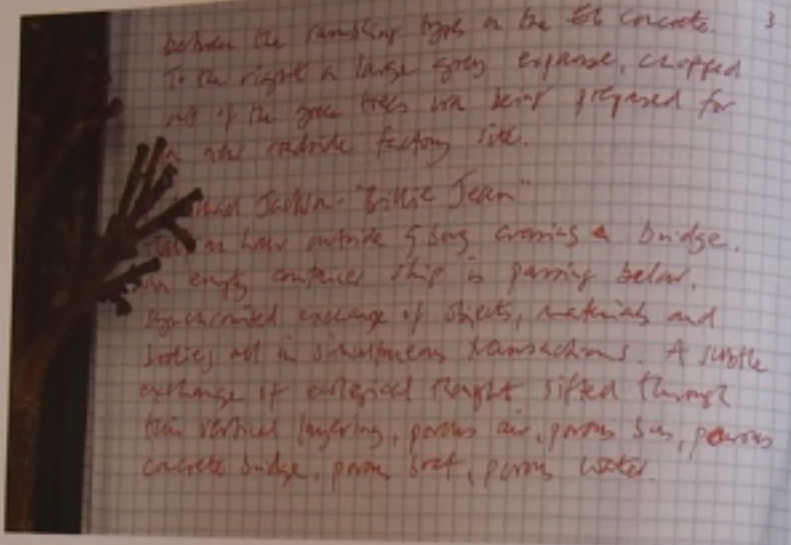 3
between the rambling on the concrete.
To the right a large grey expanse, chopped
out of the trees was being prepared for
a new roadside factory site.
Jackson - "Billie Jean"
an hour outside crossing a bridge.
an empty container ship is passing below,
synchronised exchange of objects, materials and
bodies all in simultaneous transactions. A subtle
exchange of ecological thought sifted through
this vertical layering, porous air, porous bus, porous
concrete bridge, porous boat, porous water.